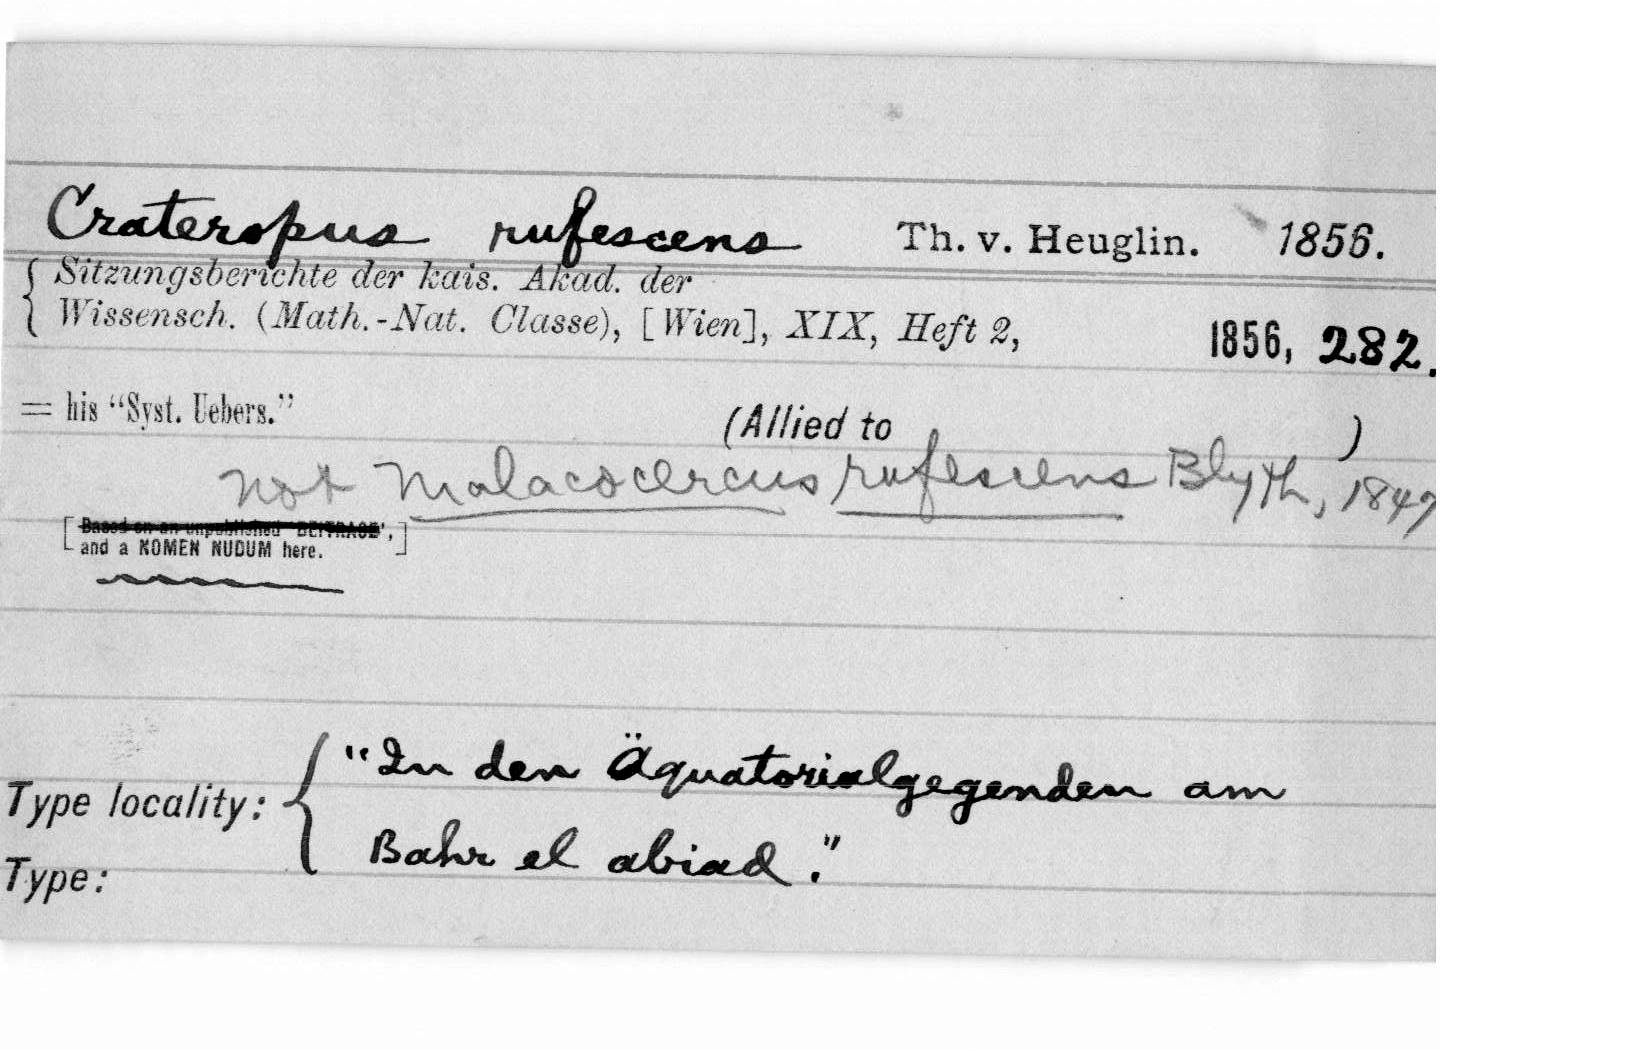 Crateropus rufescens Th. v. Heuglin. 1856.
Sitzungsberichte der kais. Akad. der
Wissensch. (Math.-Nat. Classe), [Wien], XIX, Heft 2, 1856, 282.
= his “Syst. Uebers.” (Allied to )
not Malacocercus rufescens Blyth, 1847
[Based on an unpublished 'BEITRAGE',
and a NOMEN NUDUM here.]
Type locality: { "In den Äquatorialgegenden am
Bahr el abiad."
Type: